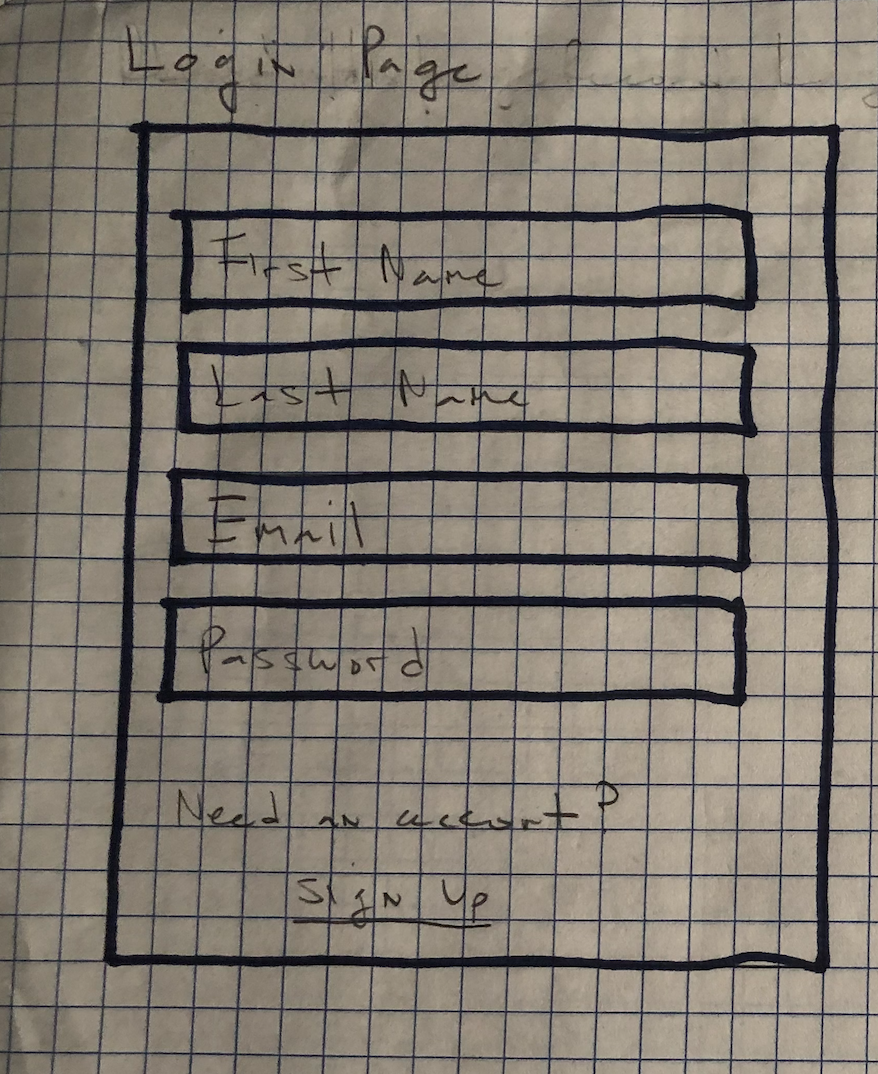 Login Page
First Name
Last Name
Email
Password
Need an account?
Sign Up